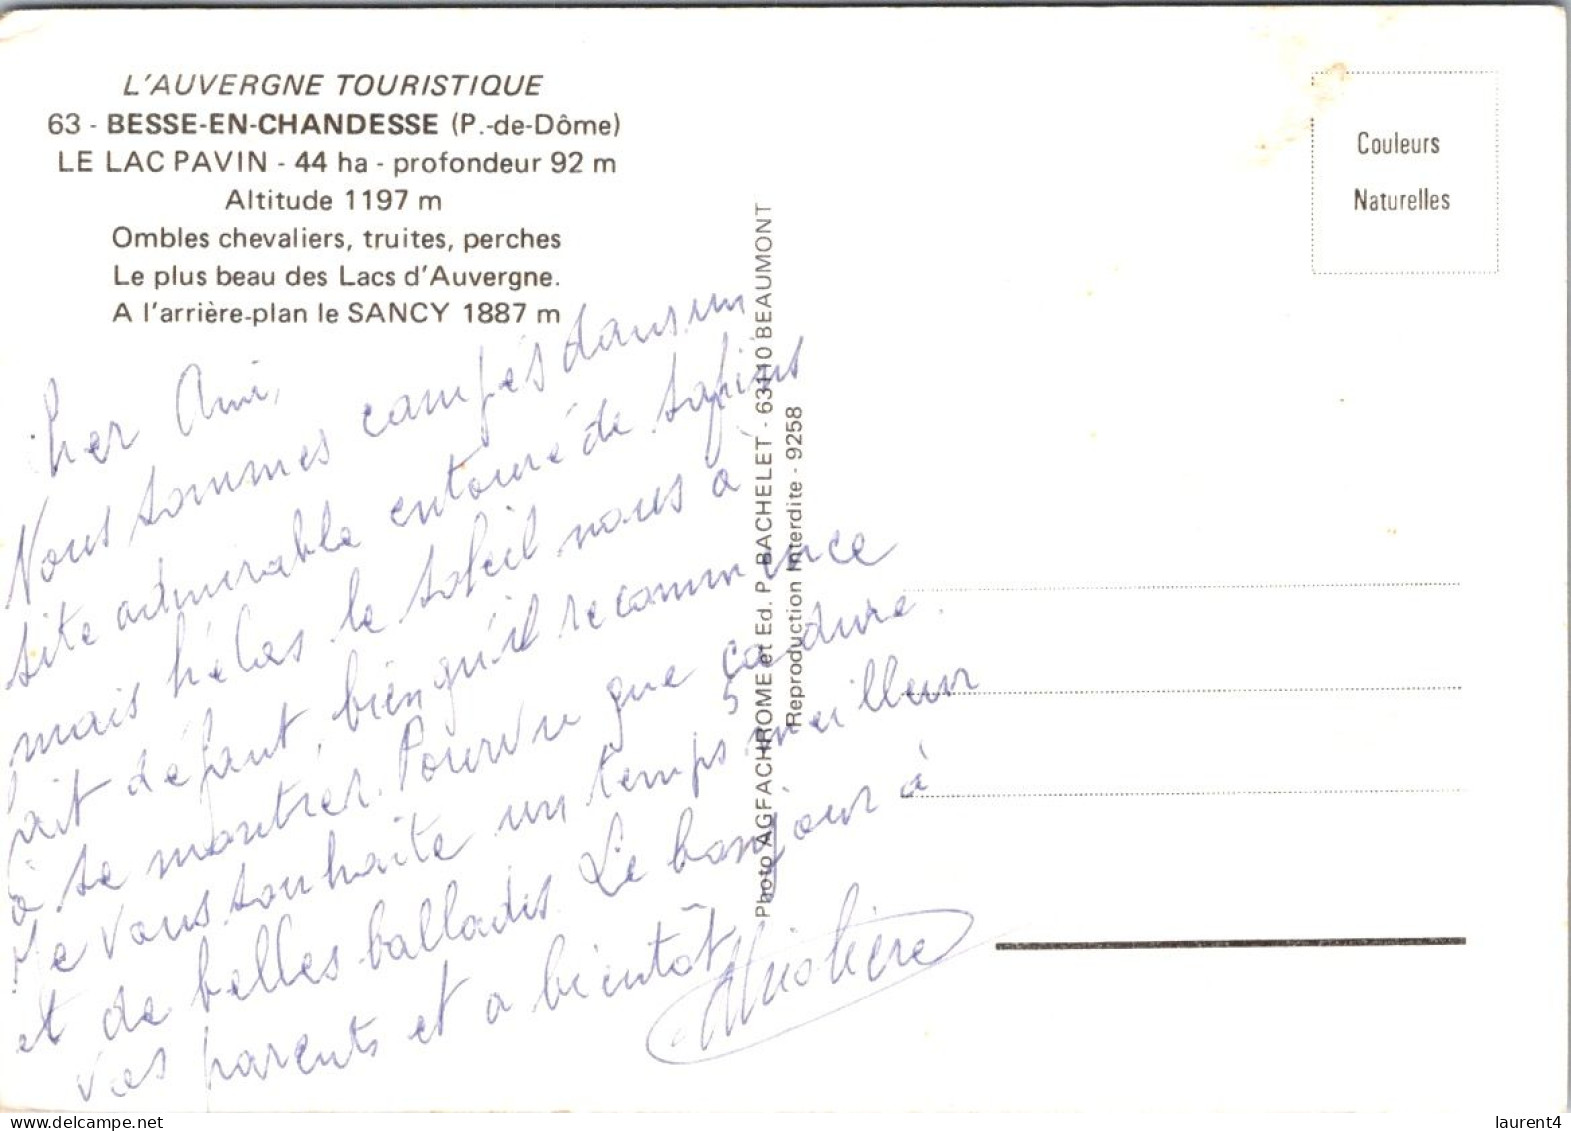 L'AUVERGNE TOURISTIQUE
63 - BESSE-EN-CHANDESSE (P.-de-Dôme)
LE LAC PAVIN - 44 ha - profondeur 92 m
Altitude 1197 m
Ombles chevaliers, truites, perches
Le plus beau des Lacs d'Auvergne.
A l'arrière-plan le SANCY 1887 m
Cher Ami,
Nous sommes campés dans un
site admirable entouré de sapins
mais hélas le soleil nous a
fait défaut, bien qu'il recommence
à se montrer. Pourvu que ça dure.
Je vous souhaite un temps meilleur
et de belles ballades. Le bonjour à
vos parents et a bientôt
Photo AGFACHROME et Ed. P. BACHELET - 63110 BEAUMONT
Reproduction Interdite - 9258
Couleurs
Naturelles
laurent4